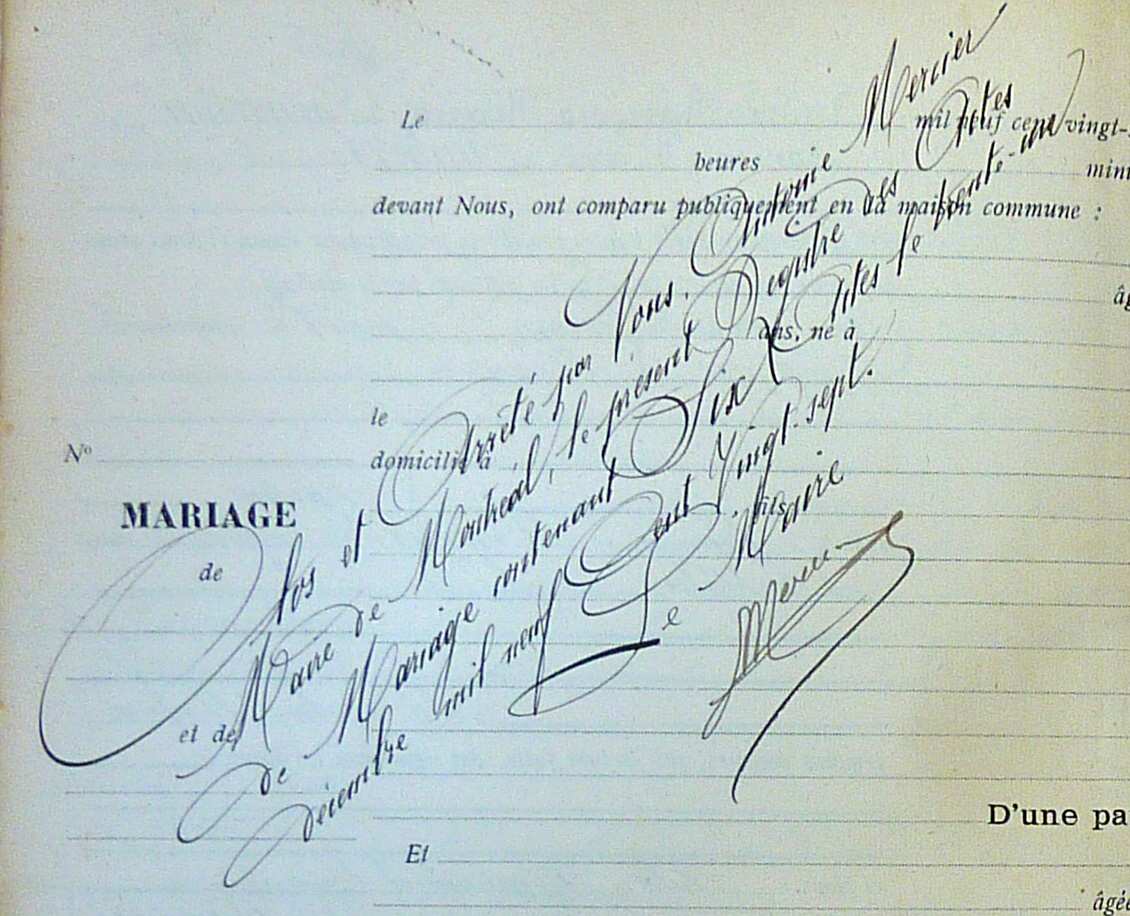 Le mil neuf cent vingt-
heures
devant Nous, ont comparu publiquement en la maison commune :
âg
ans, né à
le
No
domicilié à
MARIAGE
fils
de
et de
D'une pa
Et
âgée
Clos et Arrêté par Nous, Antonie Mercier
Maire de Montréal, le présent Registre des Actes
de Mariage contenant Six Actes le trente-un
décembre mil neuf Cent Vingt-sept.
Le Maire
Mercier